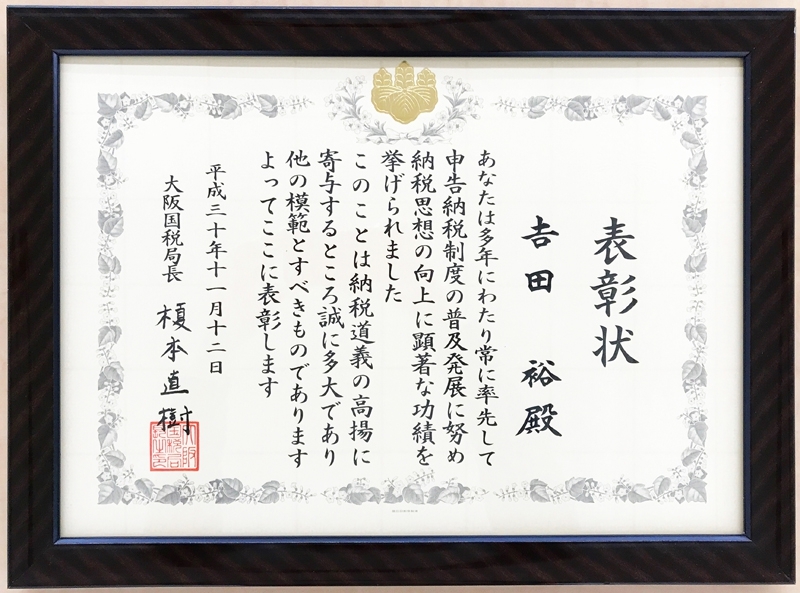 表彰状
𠮷田 裕 殿
あなたは多年にわたり常に率先して
申告納税制度の普及発展に努め
納税思想の向上に顕著な功績を
挙げられました
このことは納税道義の高揚に
寄与するところ誠に多大であり
他の模範とすべきものであります
よってここに表彰します
平成三十年十一月十二日
大阪国税局長 榎本直樹